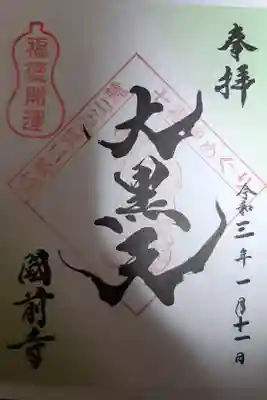 奉拝
令和三年一月十一日
大黒天
國前寺
福徳開運